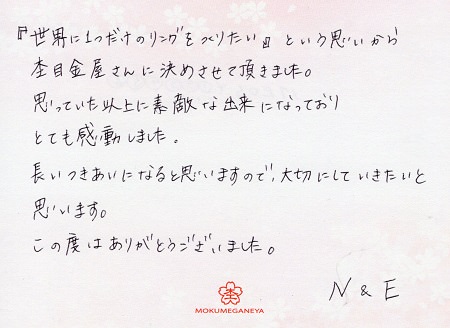 『世界に1つだけのリングをつくりたい』という思いから
杢目金屋さんに決めさせて頂きました。
思っていた以上に素敵な出来になっており
とても感動しました。
長いつきあいになると思いますので、大切にしていきたいと
思います。
この度はありがとうございました。
N & E
杢
MOKUMEGANEYA